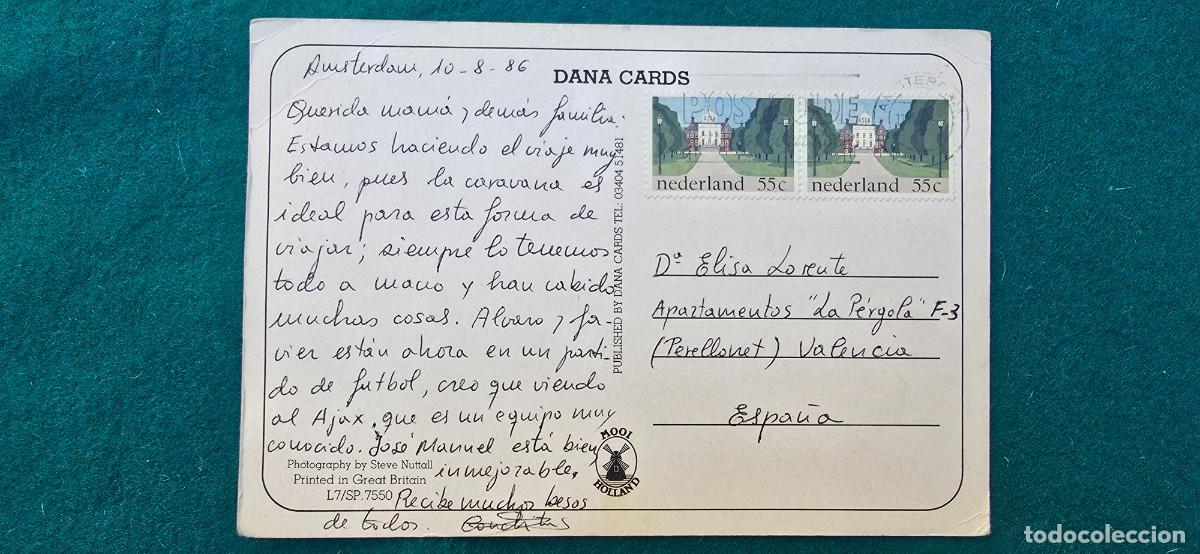 Amsterdam, 10-8-86
DANA CARDS
Querida mamá y demás familia:
Estamos haciendo el viaje muy
bien, pues la caravana es
ideal para esta forma de
viajar; siempre lo tenemos
todo a mano y han cabido
muchas cosas. Alvaro y Ja-
vier están ahora en un parti-
do de futbol, creo que viendo
al Ajax, que es un equipo muy
conocido. José Manuel está bien
inmejorable.
Recibe muchos besos
de todos.
Photography by Steve Nuttall
Printed in Great Britain
L7/SP.7550
PUBLISHED BY DANA CARDS TEL: 03404 51481
MOOI
HOLLAND
nederland 55c
nederland 55c
Dª Elisa Lorente
Apartamentos "La Pérgola" F-3
(Perellonet) Valencia
España
todocoleccion